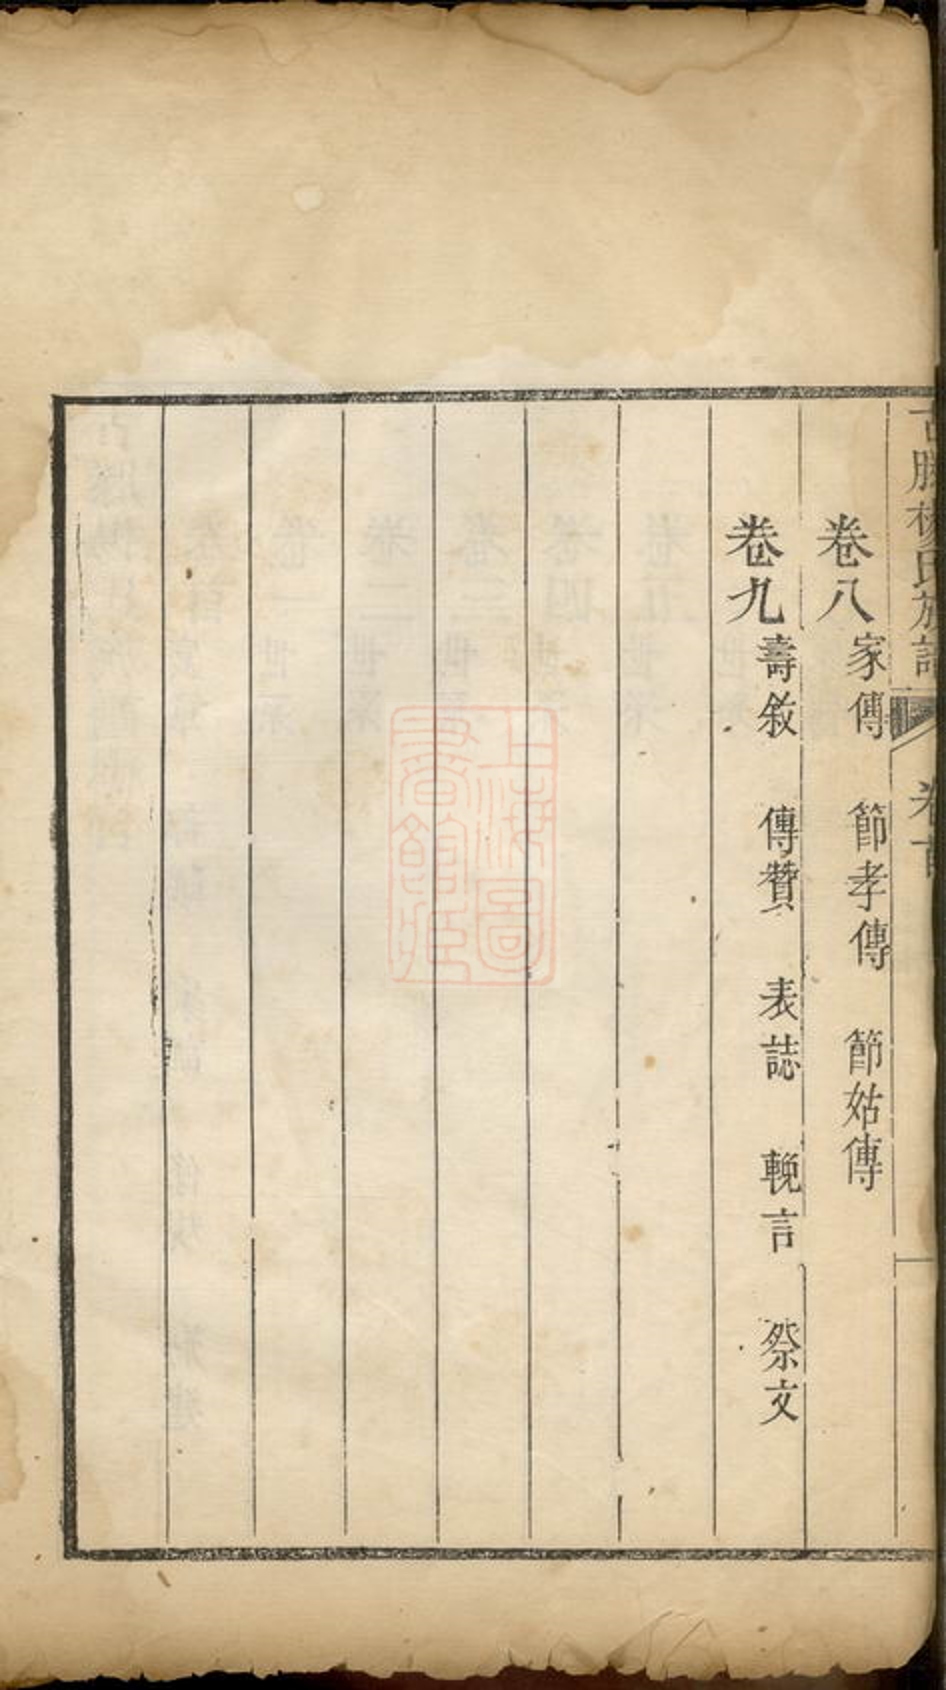 古勝楊氏族譜 卷首
卷八 家傳 節孝傳 節姑傳
卷九 壽敘 傳贊 表誌 輓言 祭文
上海圖書館藏